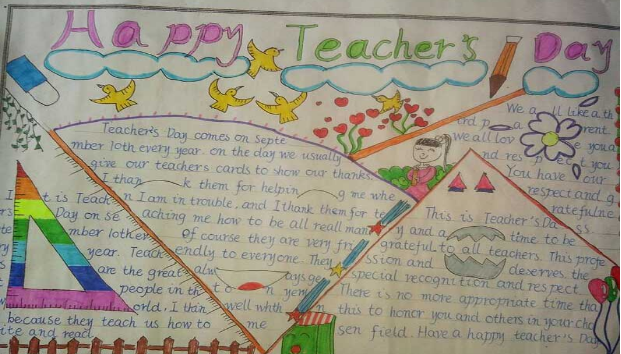 Happy Teacher's Day
Teacher's Day comes on Septe
mber 10th every year. on the day we usually
give our teachers cards to show our thanks
I than k them for helpin g me whe
n I am in trouble, and I thank them for te
aching me how to be all reall man
of course they are very fri
endly to everyone. They
are the great
t is Teach
Day on se
mber 10th
year. Teach
people in th
orld. I thin
because they teach us how to
ite and read.
well whth
me
We a ll like a th
ird p a rent.
we all lov e you a
nd res p ect you
You have our
respect and g
ratefulne ss.
This is Teacher's Da
y and a time to be
grateful to all teachers. This profe
ssion and deserves the
special recognition and respect.
There is no more appropriate time tha
n this to honor you and others in your cho
sen field. Have a happy teacher's Day